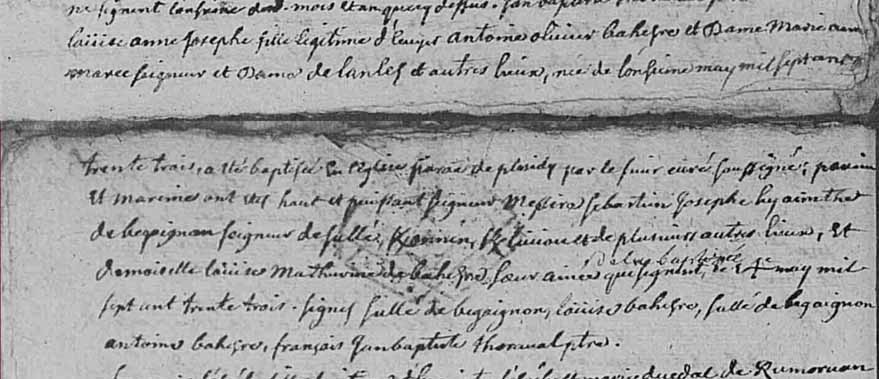 signent mois et an que cy dessus. Jan baptiste
loüise anne Josephe fille legitime d'Ecuyer antoine olivier bahezre et Dame Marie anne
seigneur et Dame de Lanlay et autres lieux, née de may mil sept cent
trente trois, a eté baptisée En l'église de plesidy par le sieur curé soussigné; parain
et maraine ont etés haut et puissant seigneur Messire Sebastien Josephe hyacinthe
de begaignon seigneur de sullé, et de plusieurs autres lieux, Et
de la baptisée
demoiselle loüise Mathurine de bahezre sœur ainée qui signent, ce may mil
sept cent trente trois. signés sullé de begaignon, loüise bahezre, sullé de begaignon
antoine bahezre, françois Jan baptiste thoraval ptre.
marie de